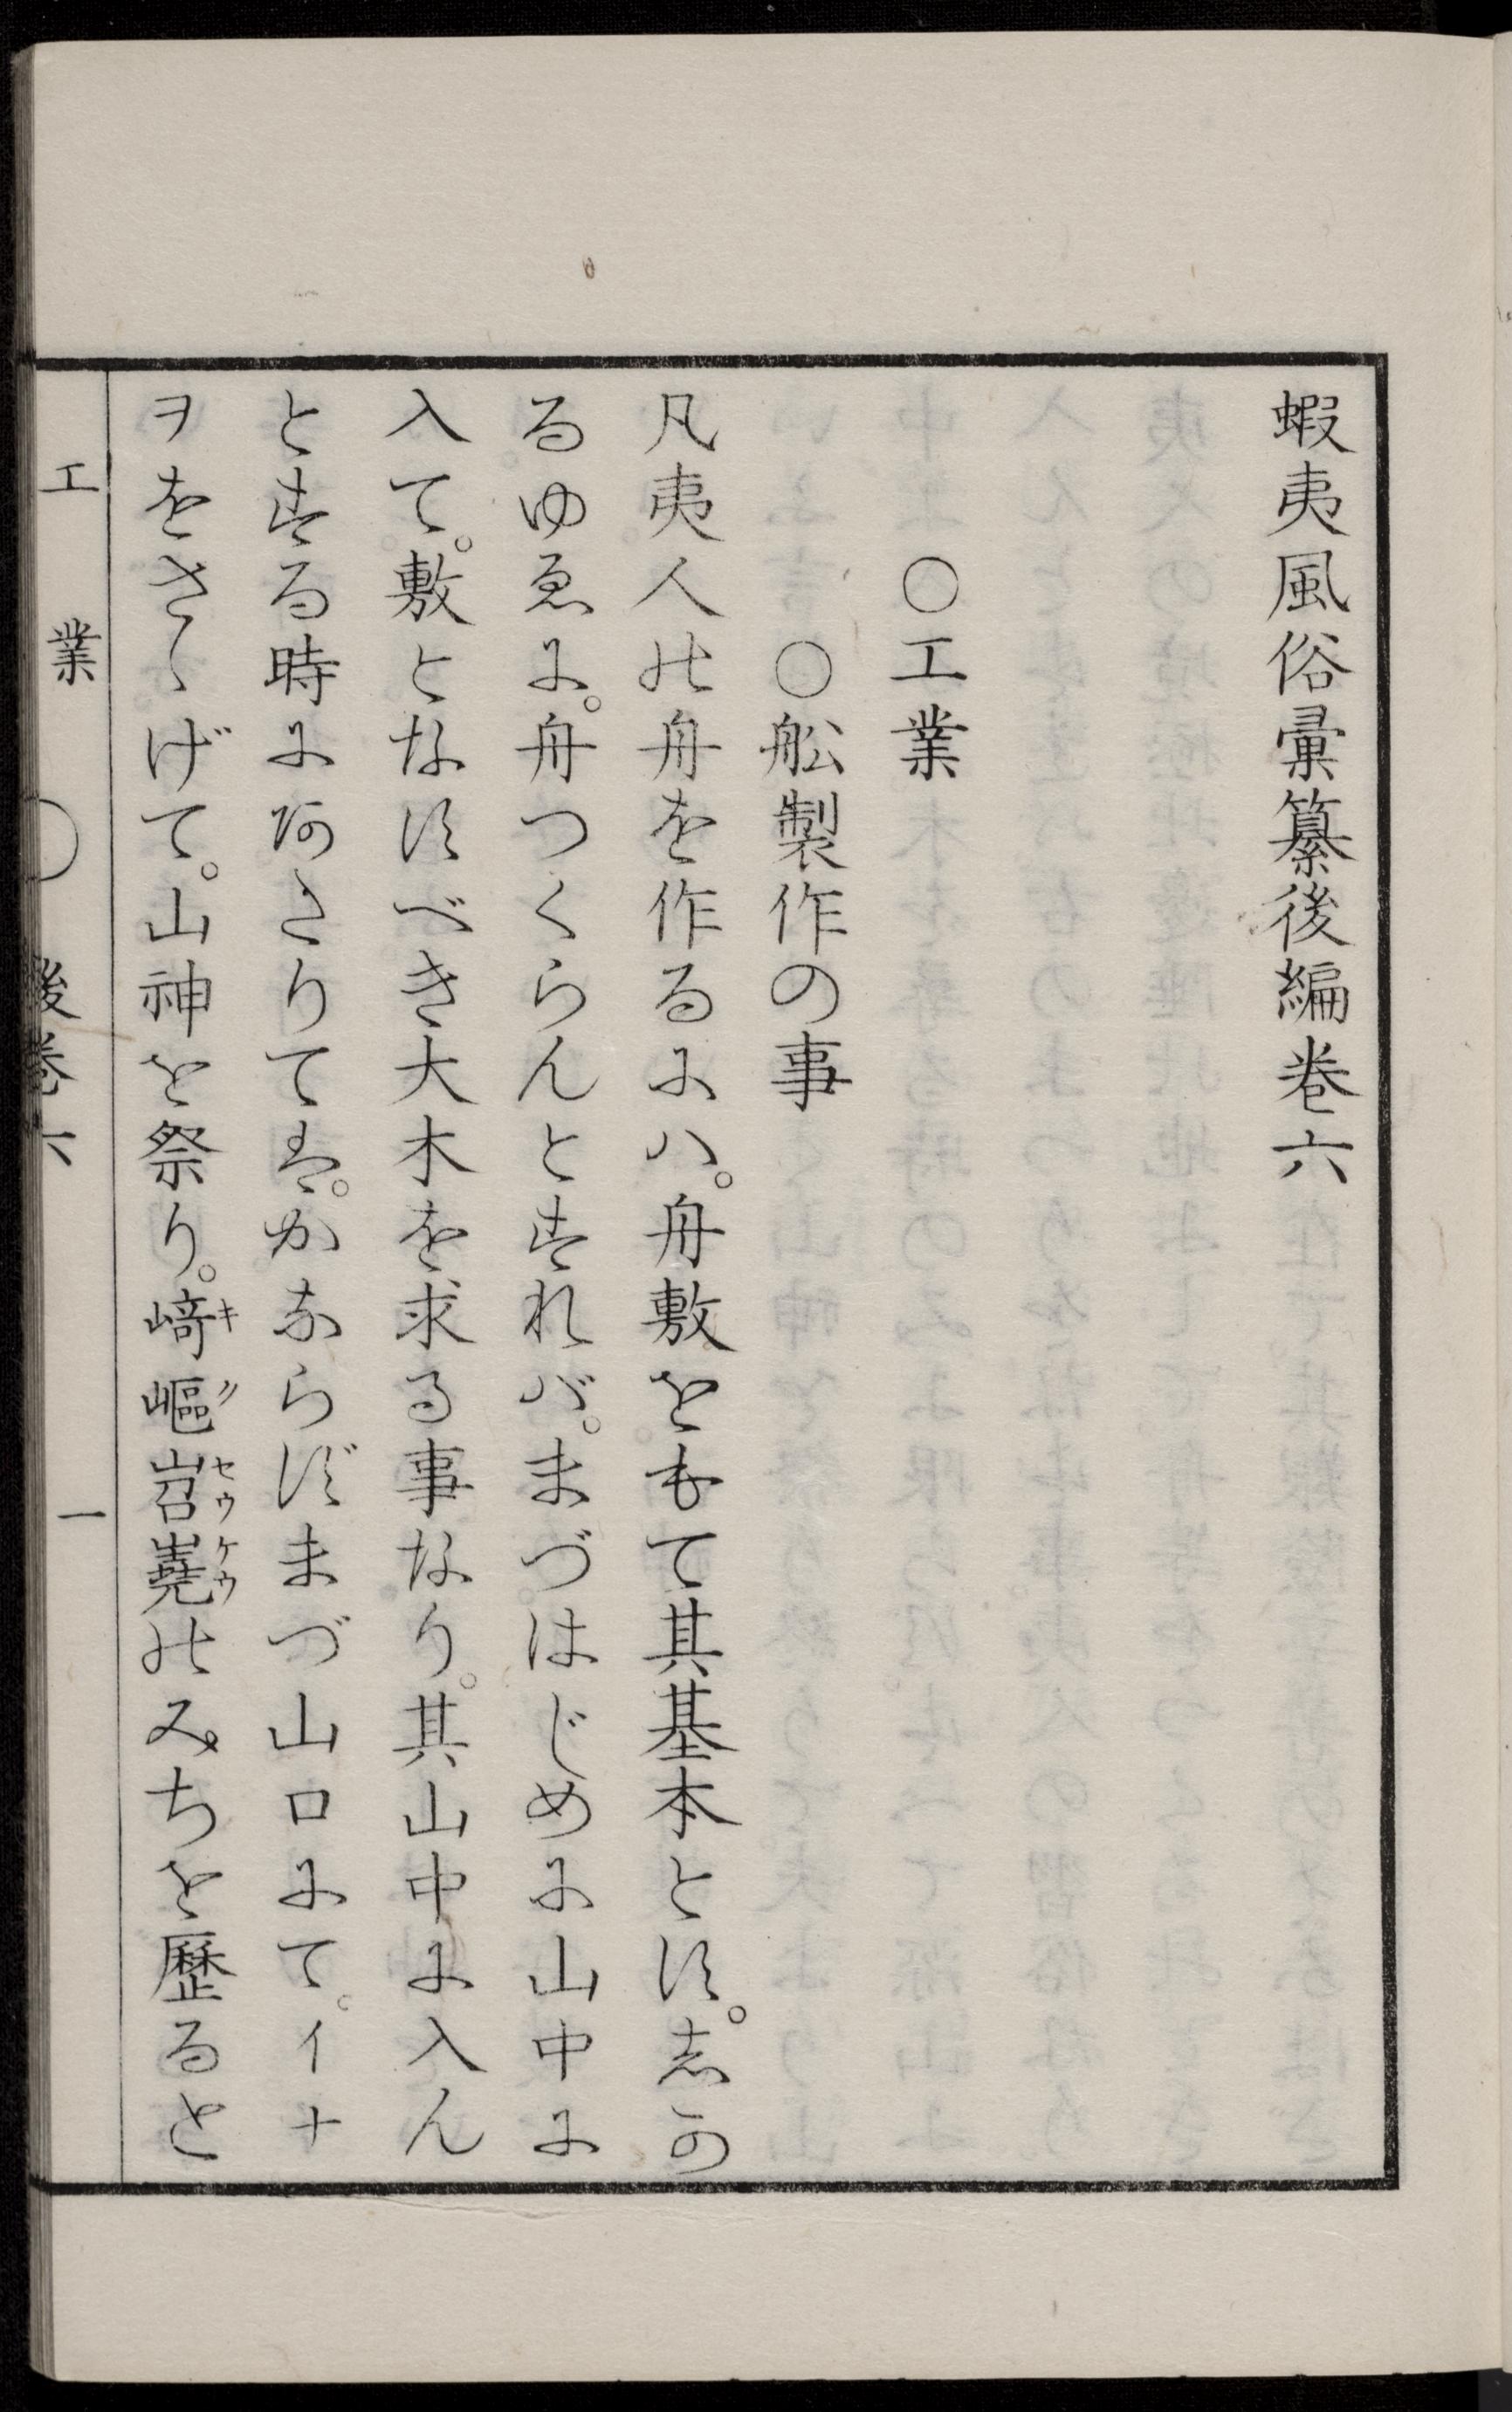 蝦夷風俗彙纂後編巻六
〇工業
〇舩製作の事
凡夷人の舟を作るにハ。舟敷をもて其基本とす。志か
るゆゑに。舟つくらんとすれバ。まづはじめに山中に
入て。敷となすべき大木を求る事なり。其山中に入ん
とする時にあさりては。かならずまづ山口にて。イナ
ヲをさゝげて。山神を祭り。﨑嶇岧嶤のみちを歴ると
キ
ク
セウ
ケウ
工業 〇 後巻六 一